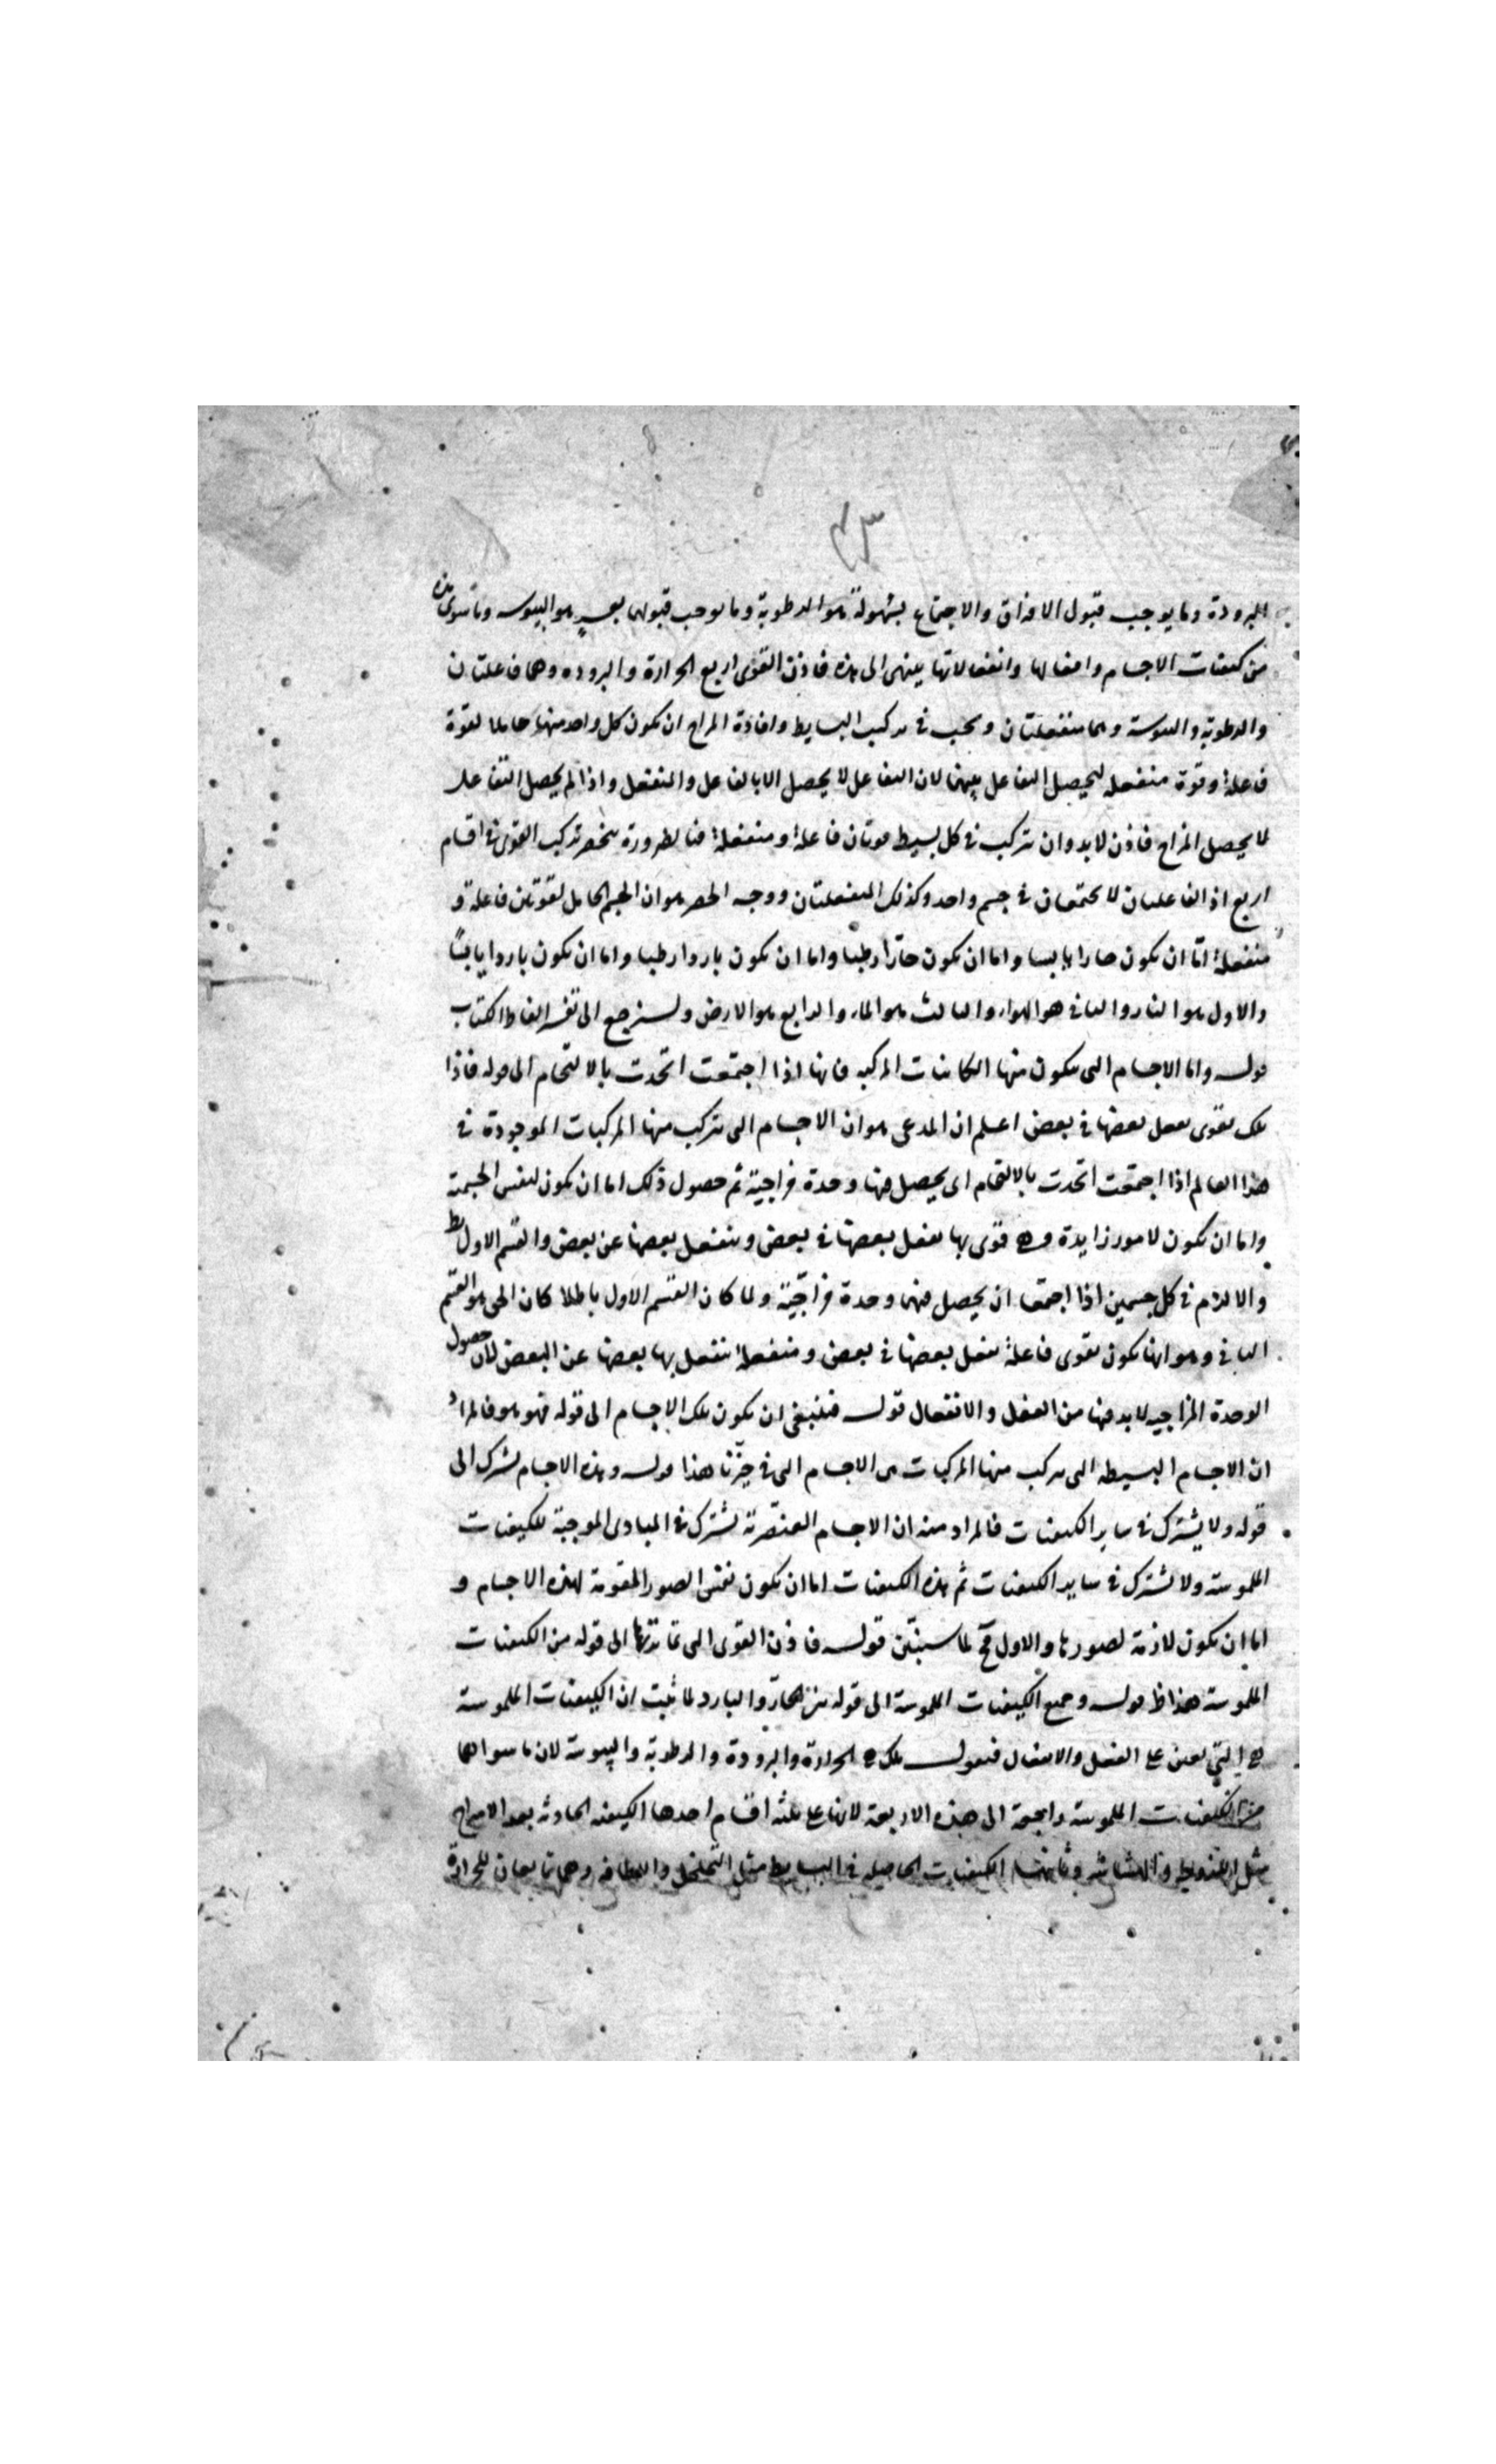 ٤٣
البرودة وما يوجب قبول الافتراق والاجتماع بسهولة هو الرطوبة وما يوجب قبولهما بعسر هو اليبوسه وما سوى هذه
من كيفيات الاجسام وافعالها وانفعالاتها ينتهى الى هذه فاذن القوى اربع الحرارة والبروده وهما فاعلتان
والرطوبة واليبوسة وهما منفعلتان ويجب فى تركيب البسايط وافادة المزاج ان يكون كل واحد منها حاملا لقوة
فاعلة وقوة منفعله ليحصل التفاعل بينهما لان التفاعل لا يحصل الا بالفاعل والمنفعل واذا لم يحصل التفاعل
لما يحصل المزاج فاذن لا بد وان تركب فى كل بسيط قوتان فاعلة ومنفعلة فبالضرورة ينحصر تركيب القوى فى اقسام
اربع اذ الفاعلتان لا يجتمعان فى جسم واحد وكذلك المنفعلتان ووجه الحصر هو ان الجسم الحامل لقوتين فاعلة و
منفعلة امّا ان يكون حارا يابسا واما ان يكون حارّا رطبا واما ان يكون باردا رطبا واما ان يكون باردا يابسًا
والاول هو النار والثانى هو الهواء والثالث هو الماء والرابع هو الارض ولنرجع الى تفسير الفاظ الكتاب
قوله واما الاجسام التى يتكون منها الكاينات المركبه فانها اذا اجتمعت اتحدت بالالتحام الى قوله فاذا
تلك بقوى يفعل بعضها فى بعض اعلم ان المدعى هو ان الاجسام التى يتركب منها المركبات الموجودة فى
هذا العالم اذا اجتمعت اتحدت بالالتحام اى يحصل منها وحدة مزاجيّة ثم حصول ذلك اما ان يكون لنفس الجسمية
واما ان يكون لامور زايدة وهى قوى بها يفعل بعضها فى بعض وينفعل بعضها عن بعض والقسم الاول بط
والا لزم فى كل جسمين اذا اجتمعا ان يحصل منهما وحدة مزاجيّة ولما كان القسم الاول باطلا كان الحق هو القسم
الثانى وهو انها يكون بقوى فاعلة يفعل بعضها فى بعض ومنفعلة ينفعل بها بعضها عن البعض لان حصول
الوحدة المزاجيه لا بد فيها من الفعل والانفعال قوله فينبغى ان يكون تلك الاجسام الى قوله فهو هو فالمراد
ان الاجسام البسيطه التى يتركب منها المركبات هى الاجسام التى فى حيّزنا هذا قوله وهذه الاجسام تشترك الى
قوله ولا يشترك فى ساير الكيفيات فالمراد منه ان الاجسام العنصريّة تشترك فى المبادى الموجبة للكيفيات
الملموسة ولا تشترك فى ساير الكيفيات ثم هذه الكيفيات اما ان يكون نفس الصور المقومة لهذه الاجسام و
اما ان يكون لازمة لصورها والاول مح لما سنبيّن قوله فاذن القوى التى الى قوله من الكيفيات
الملموسة هذا ظ قوله وجميع الكيفيات الملموسة الى قوله الحارّ والبارد لما ثبت ان الكيفيات الملموسة
هى التى تعين على الفعل والانفعال فنقول تلك هى الحرارة والبرودة والرطوبة واليبوسة لان ما سواها
من الكيفيات الملموسة راجعة الى هذه الاربعة لانها على ثلثة اقسام احدها الكيفيه الحادثه بعد الامتزاج
مثل اللزوجة والهشاشه وثانيها الكيفيات الحاصله فى البسايط مثل التخلخل واللطافه وهما تابعان للحرارة